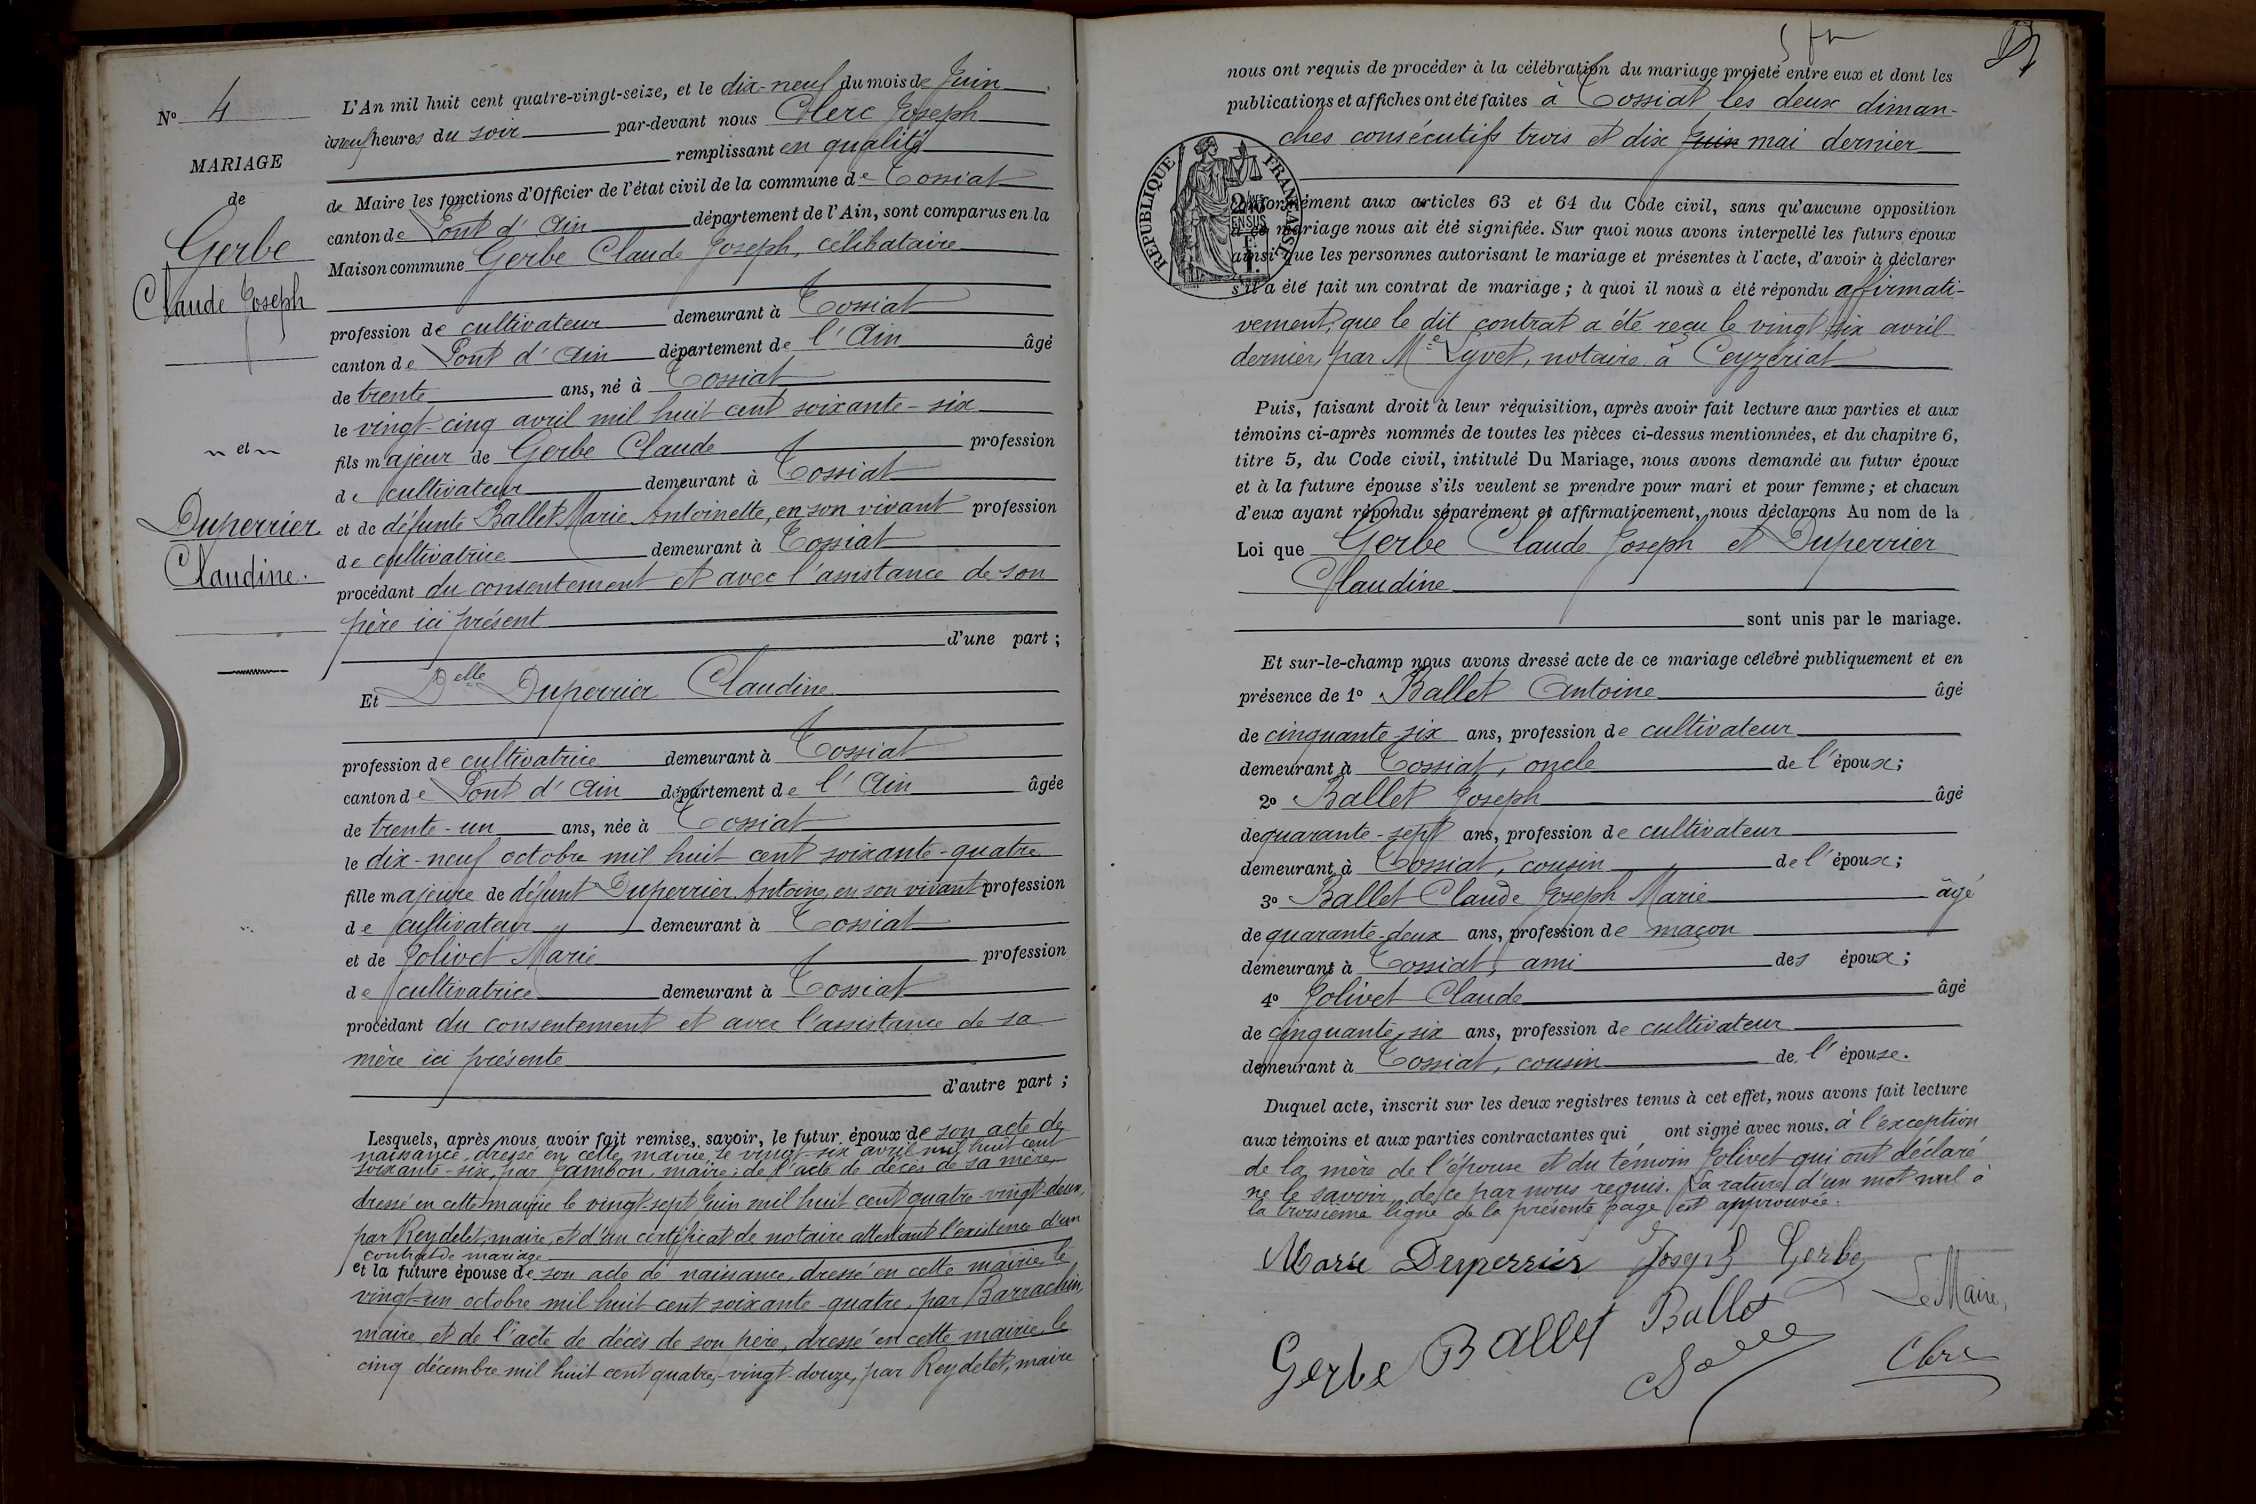 N° 4
MARIAGE
de
Gerbe
Claude Joseph
et
Duperrier
Claudine.
L'An mil huit cent quatre-vingt-seize, et le dix-neuf du mois de Juin
à neuf heures du soir par-devant nous Clerc Joseph
remplissant en qualité
de Maire les fonctions d'Officier de l'état civil de la commune de Tossiat
canton de Pont d'Ain département de l'Ain, sont comparus en la
Maison commune Gerbe Claude Joseph, célibataire
profession de cultivateur demeurant à Tossiat
canton de Pont d'Ain département de l'Ain âgé
de trente ans, né à Tossiat
le vingt-cinq avril mil huit cent soixante-six
fils majeur de Gerbe Claude profession
de cultivateur demeurant à Tossiat
et de défunte Ballet Marie Antoinette, en son vivant profession
de cultivatrice demeurant à Tossiat
procédant du consentement et avec l'assistance de son
père ici présent
d'une part ;
Et Delle Duperrier Claudine
profession de cultivatrice demeurant à Tossiat
canton de Pont d'Ain département de l'Ain âgée
de trente-un ans, née à Tossiat
le dix-neuf octobre mil huit cent soixante-quatre
fille majeure de défunt Duperrier Antoine, en son vivant profession
de cultivateur demeurant à Tossiat
et de Jolivet Marie profession
de cultivatrice demeurant à Tossiat
procédant du consentement et avec l'assistance de sa
mère ici présente
d'autre part ;
Lesquels, après nous avoir fait remise, savoir, le futur époux de son acte de
naissance, dressé en cette mairie, le vingt-six avril mil huit cent
soixante-six, par Jambon, maire ; de l'acte de décès de sa mère,
dressé en cette mairie le vingt-sept Juin mil huit cent quatre-vingt-deux,
par Reydelet, maire, et d'un certificat de notaire attestant l'existence d'un
contrat de mariage
et la future épouse de son acte de naissance, dressé en cette mairie, le
vingt-un octobre mil huit cent soixante-quatre, par Barrachin,
maire, et de l'acte de décès de son père, dressé en cette mairie, le
cinq décembre mil huit cent quatre-vingt-douze, par Reydelet, maire
nous ont requis de procéder à la célébration du mariage projeté entre eux et dont les
publications et affiches ont été faites à Tossiat les deux diman-
ches consécutifs trois et dix Juin mai dernier
RÉPUBLIQUE FRANÇAISE
conformément aux articles 63 et 64 du Code civil, sans qu'aucune opposition
à ce mariage nous ait été signifiée. Sur quoi nous avons interpellé les futurs époux
ainsi que les personnes autorisant le mariage et présentes à l'acte, d'avoir à déclarer
s'il a été fait un contrat de mariage ; à quoi il nous a été répondu affirmati-
vement, que le dit contrat a été reçu le vingt-six avril
dernier, par Me Lyvet, notaire à Ceyzériat
Puis, faisant droit à leur réquisition, après avoir fait lecture aux parties et aux
témoins ci-après nommés de toutes les pièces ci-dessus mentionnées, et du chapitre 6,
titre 5, du Code civil, intitulé Du Mariage, nous avons demandé au futur époux
et à la future épouse s'ils veulent se prendre pour mari et pour femme ; et chacun
d'eux ayant répondu séparément et affirmativement, nous déclarons Au nom de la
Loi que Gerbe Claude Joseph et Duperrier
Claudine
sont unis par le mariage.
Et sur-le-champ nous avons dressé acte de ce mariage célébré publiquement et en
présence de 1° Ballet Antoine âgé
de cinquante-six ans, profession de cultivateur
demeurant à Tossiat, oncle de l'époux ;
2° Ballet Joseph âgé
de quarante-sept ans, profession de cultivateur
demeurant à Tossiat, cousin de l'époux ;
3° Ballet Claude Joseph Marie âgé
de quarante-deux ans, profession de maçon
demeurant à Tossiat, ami des époux ;
4° Jolivet Claude âgé
de cinquante-six ans, profession de cultivateur
demeurant à Tossiat, cousin de l'épouse.
Duquel acte, inscrit sur les deux registres tenus à cet effet, nous avons fait lecture
aux témoins et aux parties contractantes qui ont signé avec nous, à l'exception
de la mère de l'épouse et du témoin Jolivet qui ont déclaré
ne le savoir, de ce par nous requis. La rature d'un mot nul à
la troisième ligne de la présente page est approuvée.
Marie Duperrier Joseph Gerbe
Le Maire,
Gerbe Ballet Ballet
Clerc